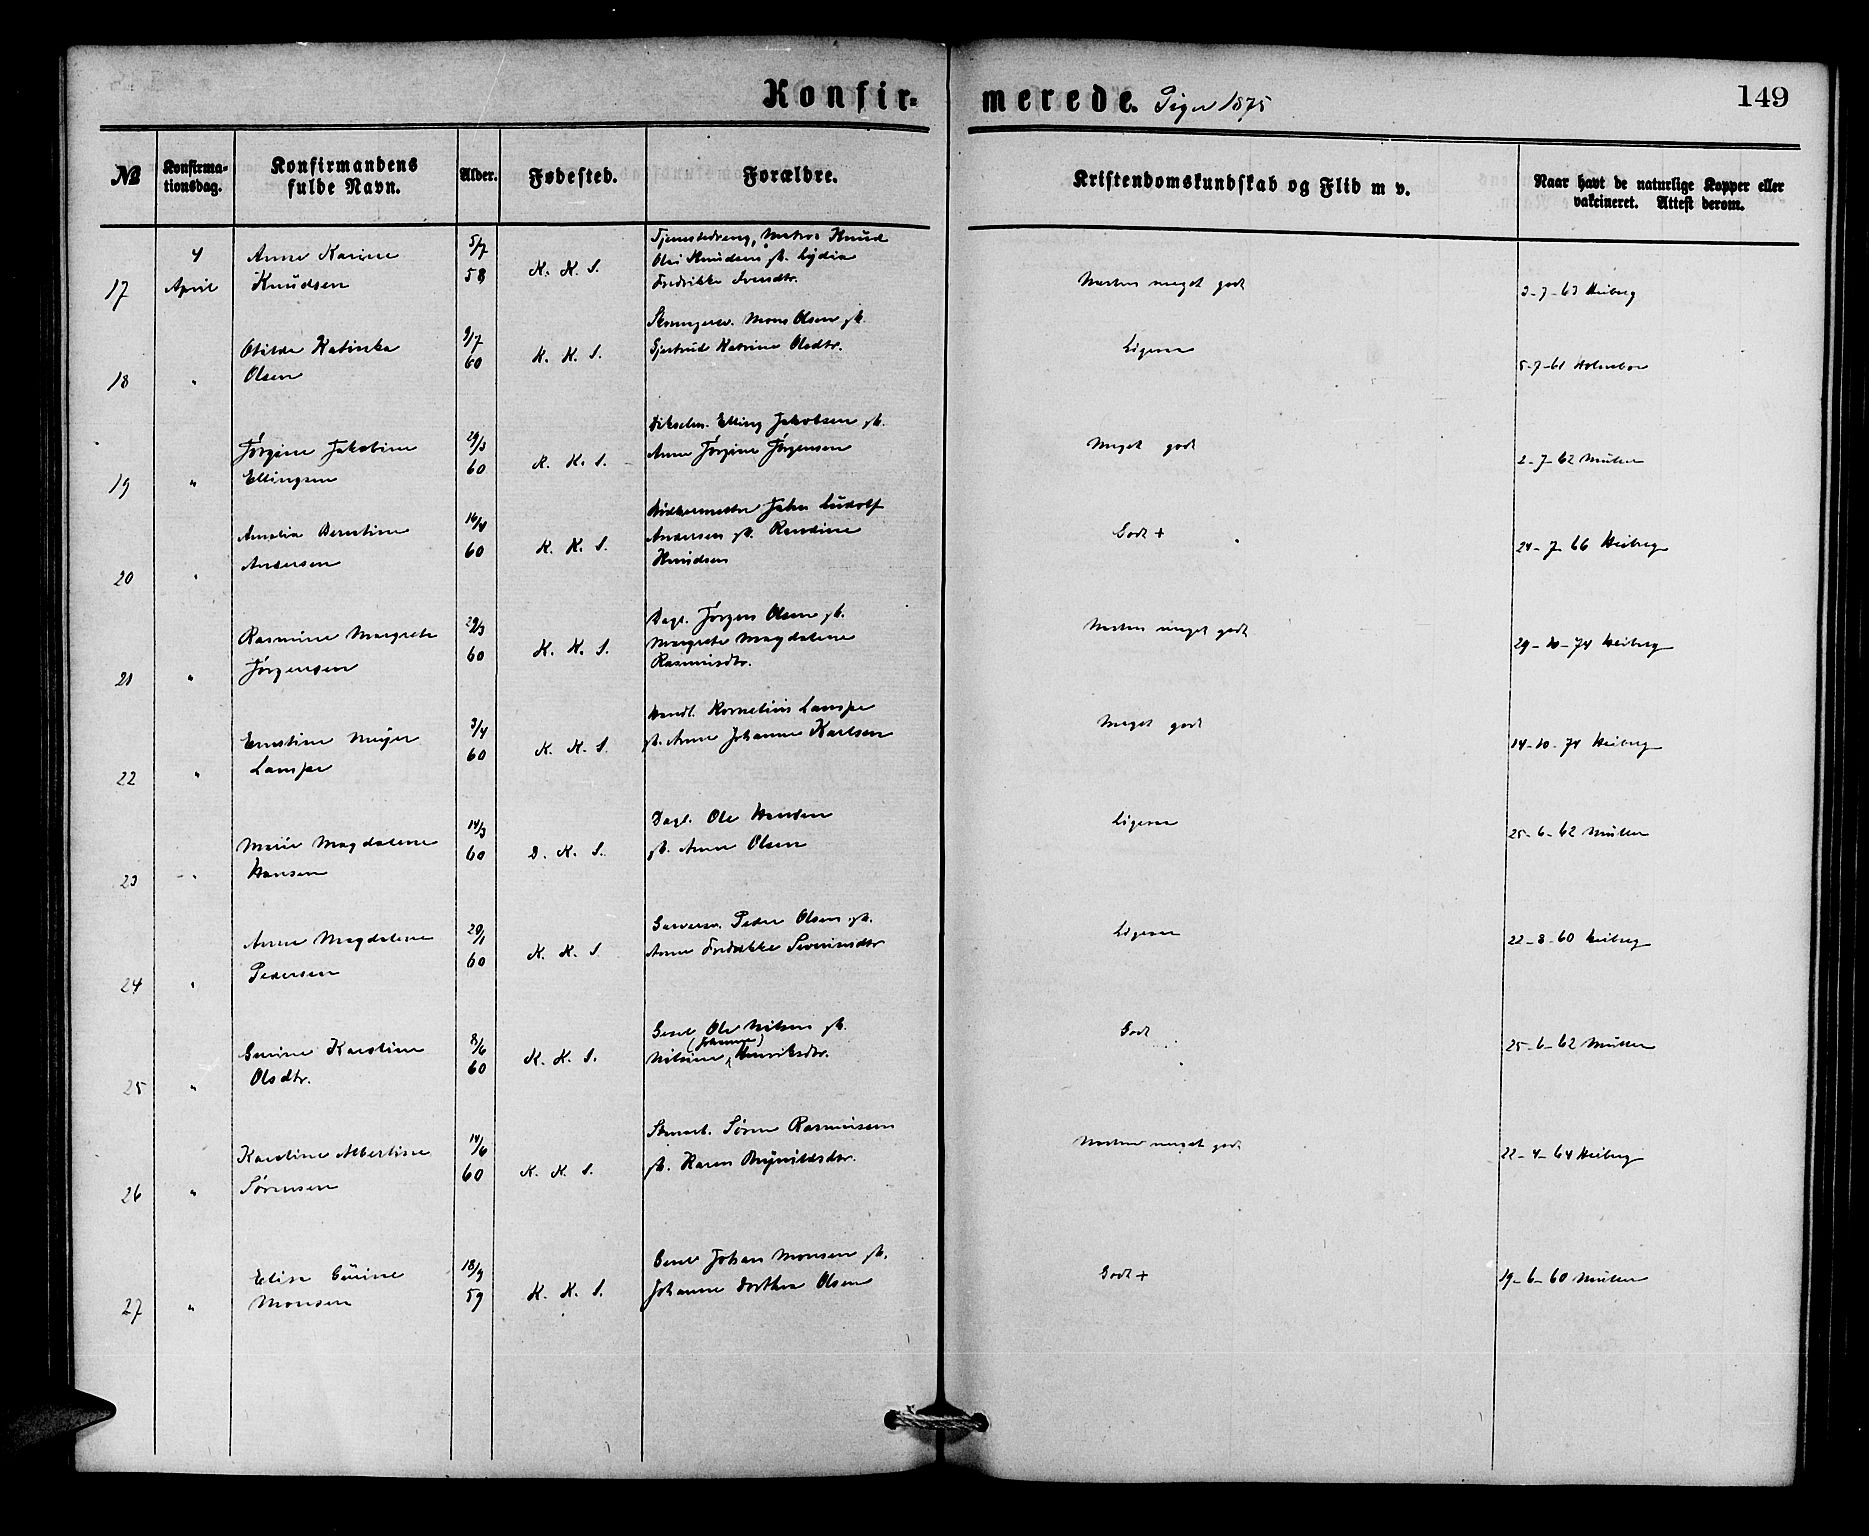 Konfir- merede. Piger 1875
149
No
Konfirma-
tionsdag.
Konfirmandens
fulde Navn.
Alder.
Fødested.
Forældre.
Kristendomskundskab og Flid m v.
Naar havt de naturlige Kopper eller
vakcineret. Attest derom.
17 4 April
Anne Karine
Knudsen
5/7 58
K. K. S.
Knud
Knudsen gb. Lydia
Fredrikke
Næsten meget godt
3-7-63 Heiberg
18 "
Otilde Katinka
Olsen
9/7 60
K. K. S.
Mons Olsen gb.
Gjertrud Katrine Olsdtr.
Ligesaa
5-7-61 Holmboe
19 "
Jørgine Jakobine
Ellingsen
29/3 60
K. K. S.
Elling Jakobsen gb.
Anne Jørgine Jørgensen
Meget godt
2-7-62 Müller
20 "
Amalia Berntine
Andersen
16/4 60
K. K. S.
Bødkermester John Ludolf
Andersen gb. Randine
Knudsen
Godt +
24-7-66 Heiberg
21 "
Rasmine Margrete
Jørgensen
29/3 60
K. K. S.
Dagl. Jørgen Olsen gb.
Margrete Magdalene
Rasmusdtr.
Næsten meget godt
29-10-74 Heiberg
22 "
Ernstine Meyer
Lampe
3/4 60
K. K. S.
Handl. Kornelius Lampe
gb. Anne Johanne Karlsen
Meget godt
14-10-74 Heiberg
23 "
Marie Magdalene
Hansen
14/3 60
D. K. S.
Dagl. Ole Hansen
gb. Anne Olsen
Ligesaa
25-6-62 Müller
24 "
Anne Magdalene
Pedersen
20/1 60
K. K. S.
Garversv. Peder Olsen gb.
Anne Fredrikke Severinsdtr
Ligesaa
22-8-60 Heiberg
25 "
Karstine
Olsdtr.
8/6 60
K. K. S.
Ole Nilsen gb.
(Johanne)
Nilsine Henriksdtr.
Godt
25-6-62 Müller
26 "
Karoline Albertine
Sørensen
14/6 60
K. K. S.
Stenarb. Søren Rasmussen
gb. Karen Brynildsdtr.
Næsten meget godt
22-4-64 Heiberg
27 "
Elisa
Monsen
18/9 59
K. K. S.
Johan Monsen gb.
Johanne Dorthea Olsen
Godt +
19-6-60 Müller